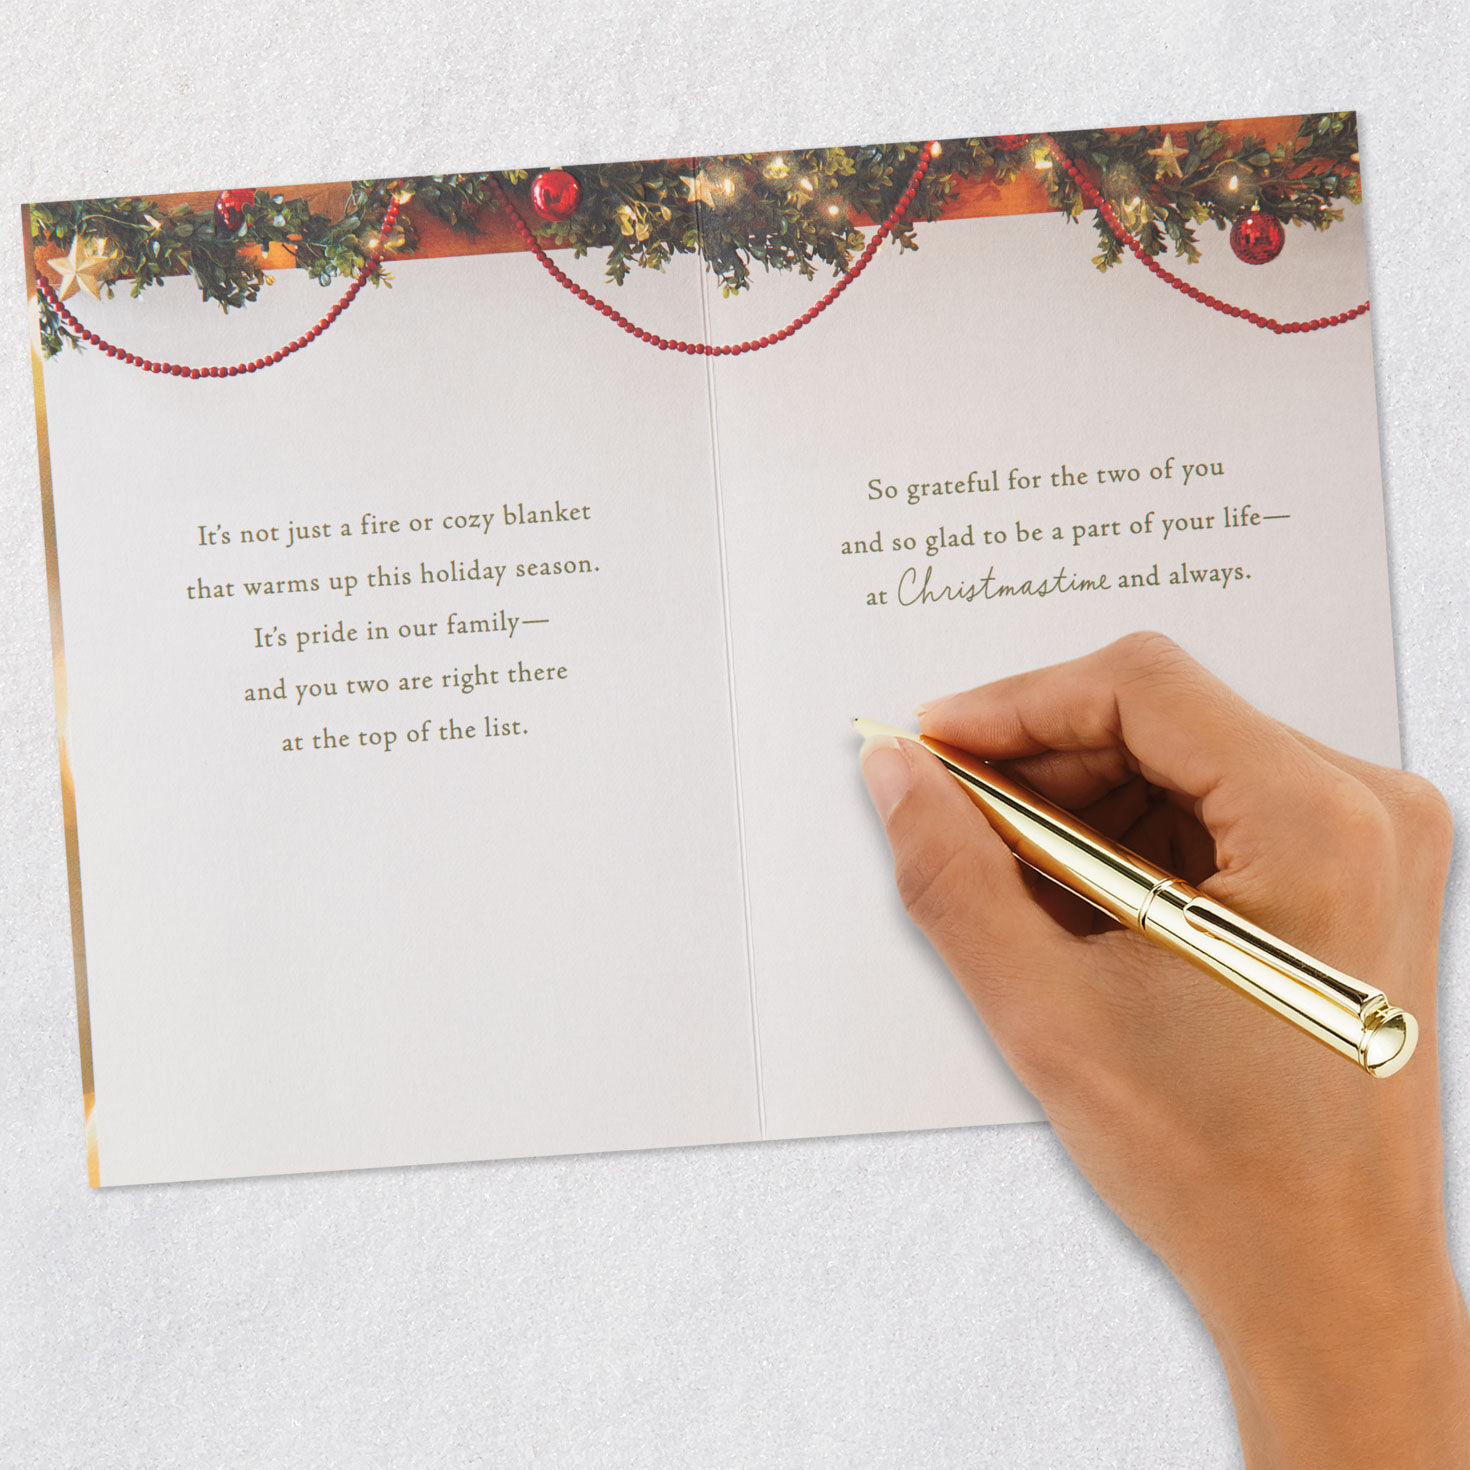 It's not just a fire or cozy blanket
that warms up this holiday season.
It's pride in our family—
and you two are right there
at the top of the list.
So grateful for the two of you
and so glad to be a part of your life—
at Christmastime and always.